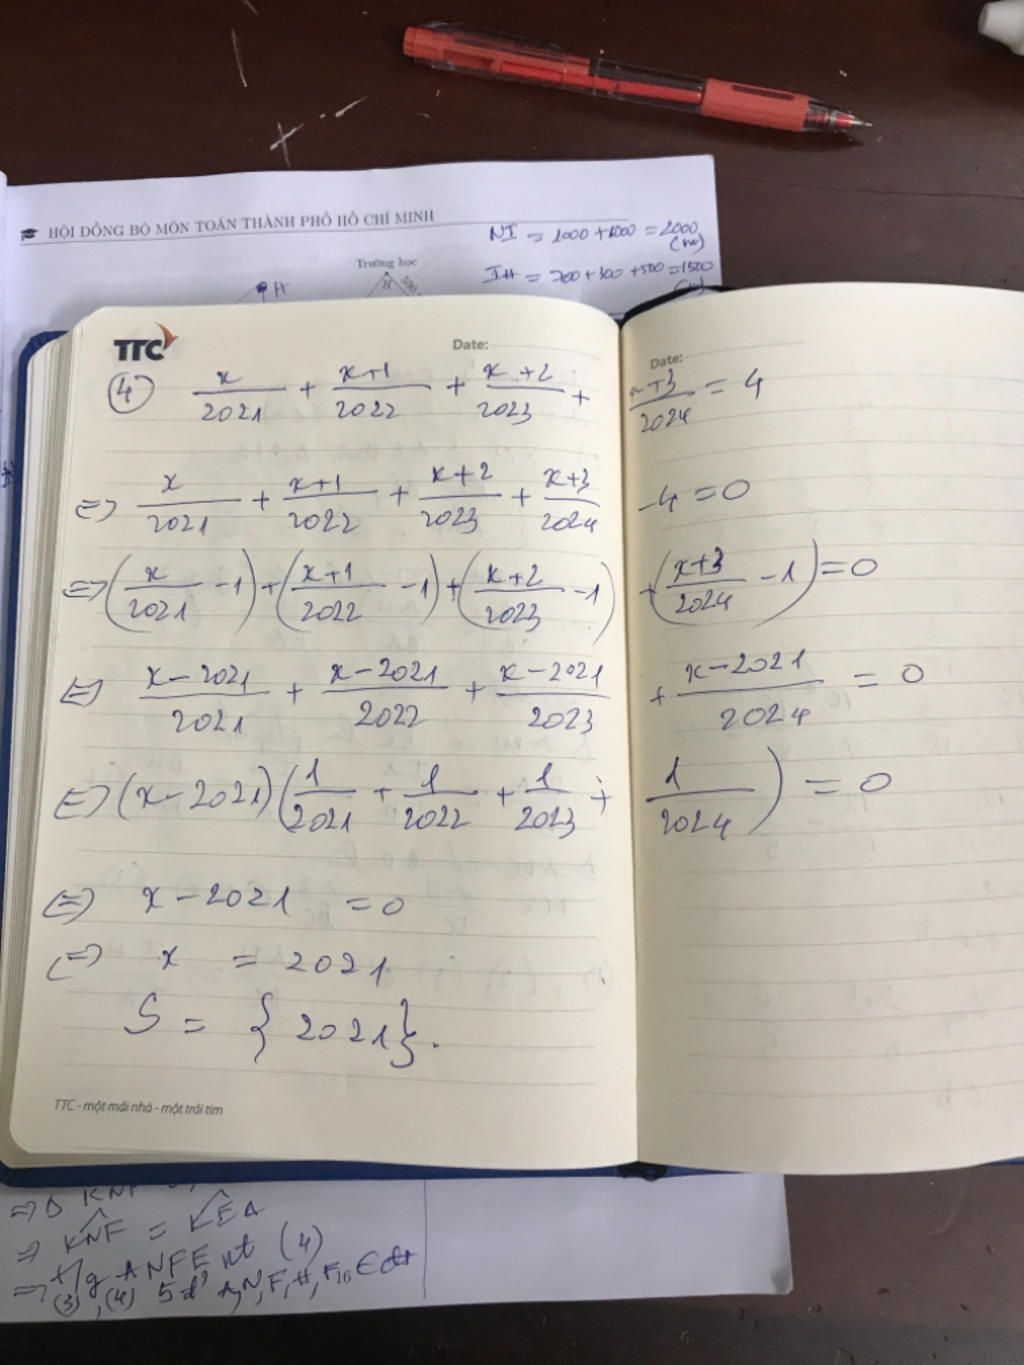 HỘI ĐỒNG BỘ MÔN TOÁN THÀNH PHỐ HỒ CHÍ MINH
NI = 1000 + 1000 = 2000 (m)
Trường học
H
IH = 700 + 300 + 500 = 1500
TTC
Date:
Date:
④ x/2021 + (x+1)/2022 + (x+2)/2023 + (x+3)/2024 = 4
⇔ x/2021 + (x+1)/2022 + (x+2)/2023 + (x+3)/2024 - 4 = 0
⇔ (x/2021 - 1) + ((x+1)/2022 - 1) + ((x+2)/2023 - 1) + ((x+3)/2024 - 1) = 0
⇔ (x-2021)/2021 + (x-2021)/2022 + (x-2021)/2023 + (x-2021)/2024 = 0
⇔ (x-2021)(1/2021 + 1/2022 + 1/2023 + 1/2024) = 0
⇔ x - 2021 = 0
⇔ x = 2021
S = {2021}.
TTC - một mái nhà - một trái tim
⇒ Δ KNF
⇒ KNF = KEA
⇒ t/g ANFE nt (4)
(3), (4) 5 đ' A, N, F, H, E
16